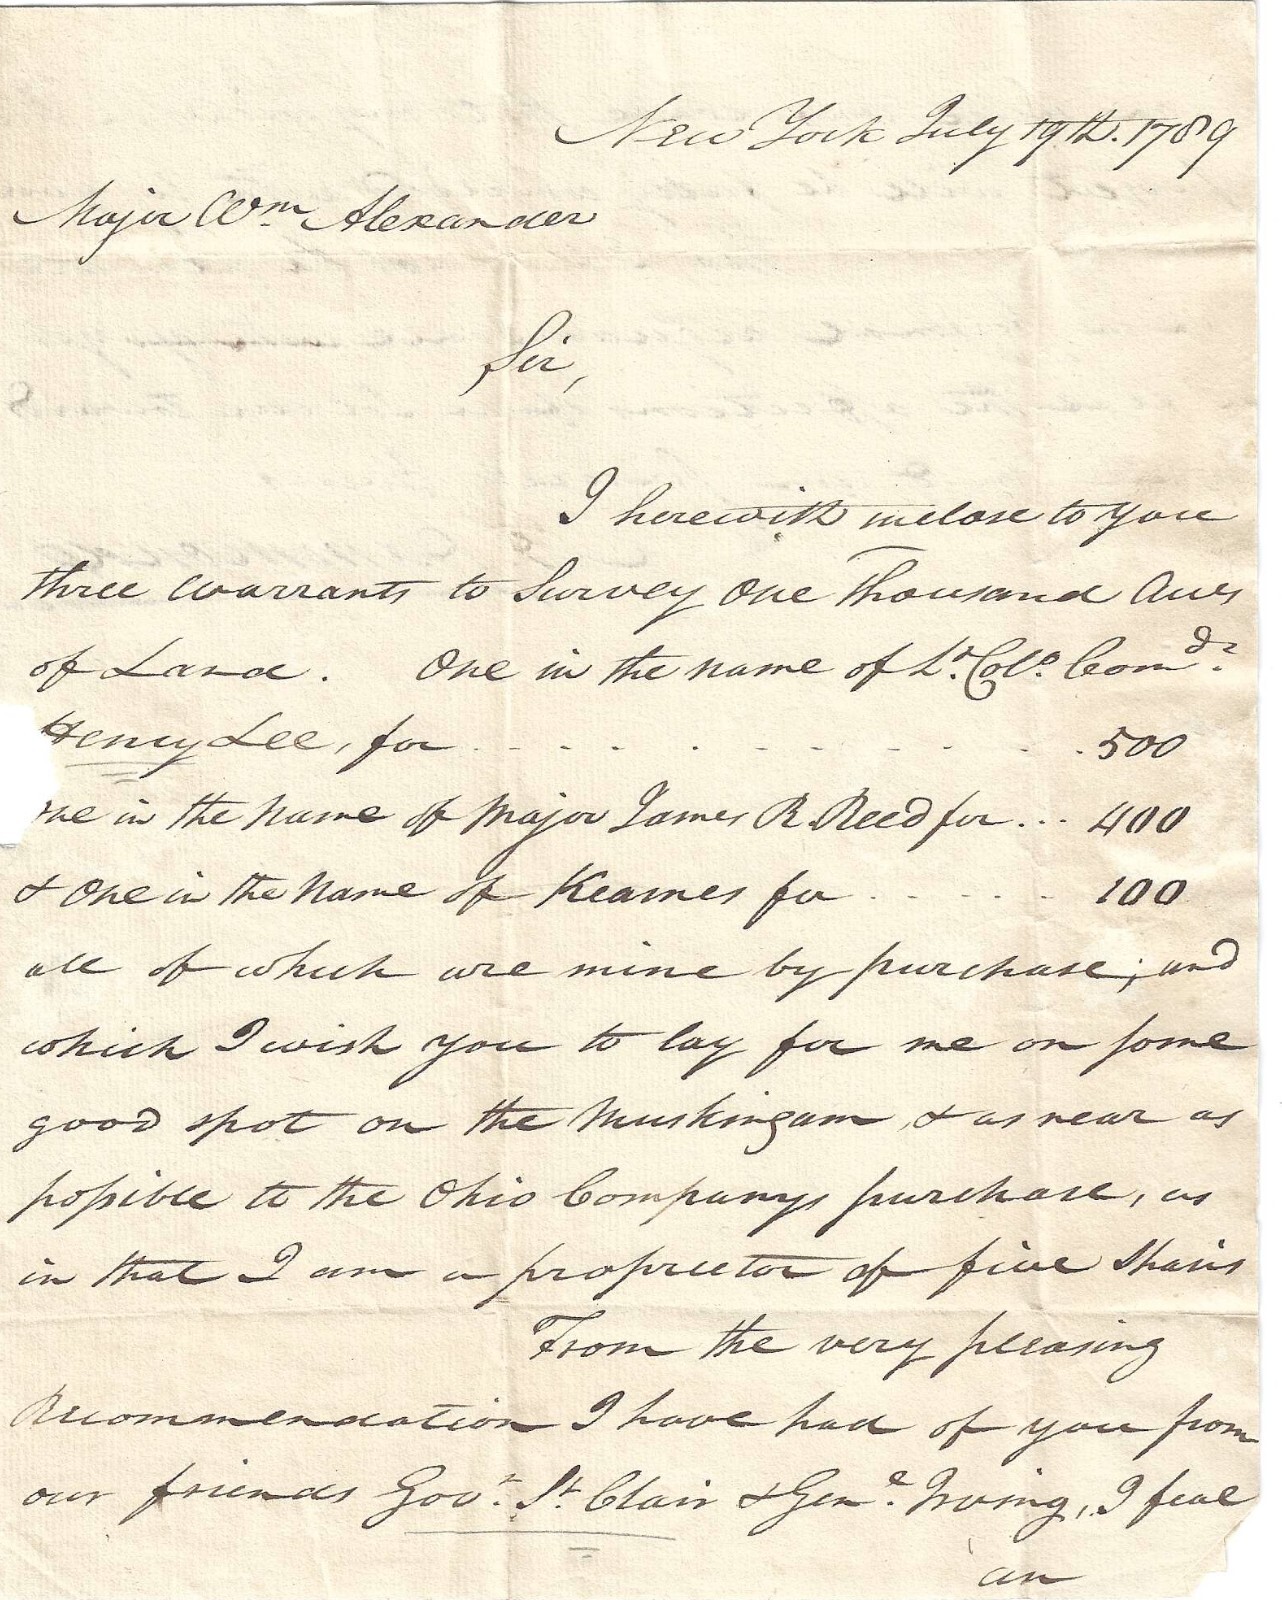 New York July 19th. 1789
Major Wm. Alexander
Sir,
I herewith inclose to you
three warrants to Survey One Thousand Acres
of Land. One in the name of Lt. Colo. Comdt.
Henry Lee, for . . . . . . . . . . 500
ne in the Name of Major James R. Reed for ... 400
& One in the Name of Kearnes for . . . . . . 100
all of which are mine by purchase; and
which I wish you to lay for me on some
good spot on the Muskingam, & as near as
possible to the Ohio Companys purchase, as
in that I am a proprietor of five Shares
From the very pleasing
Recommendation I have had of you from
our friends Govr. St Clair & Genl. Irving, I feel
an